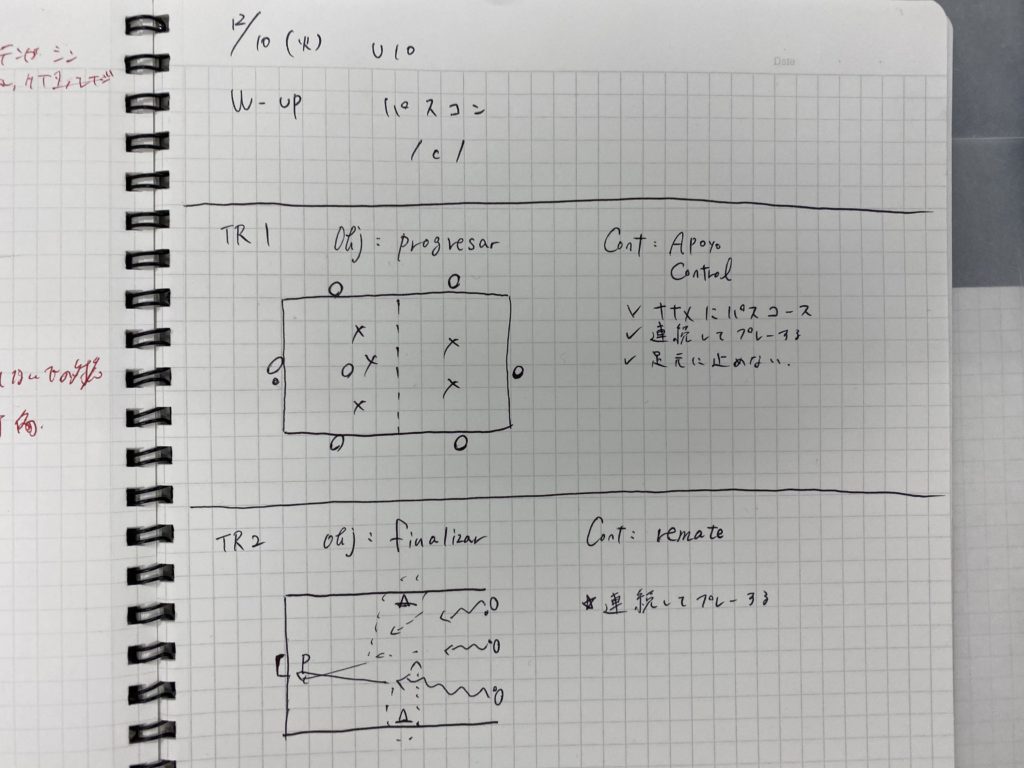 12/10 (火) U10
Date
W-up パスコン
1c1
TR1 Obj: progresar Cont: Apoyo
Control
✓ ナナメにパスコース
✓ 連続してプレーする
✓ 足元に止めない.
TR2 obj: finalizar Cont: remate
★ 連続してプレーする
P